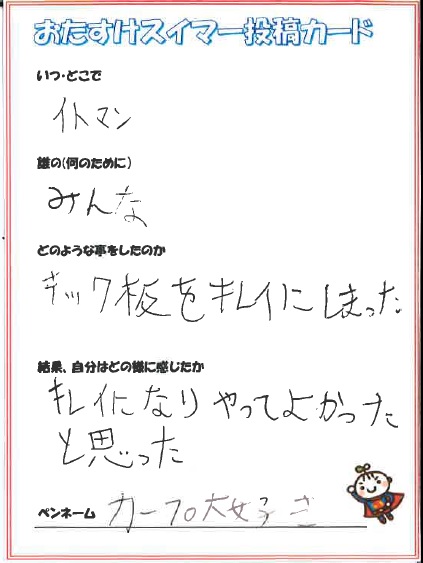 おたすけスイマー投稿カード
いつ・どこで
イトマン
誰の(何のために)
みんな
どのような事をしたのか
キック板をキレイにしまった
結果、自分はどの様に感じたか
キレイになりやってよかった
と思った
ペンネーム カープ大女子き